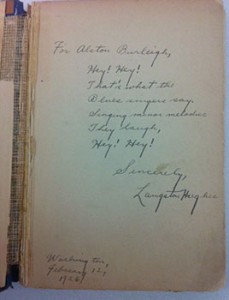 For Alston Burleigh,
Hey! Hey!
That's what the
Blues singers say.
Singing minor melodies
They laugh,
Hey! Hey!
Sincerely,
Langston Hughes
Washington,
February 12,
1926